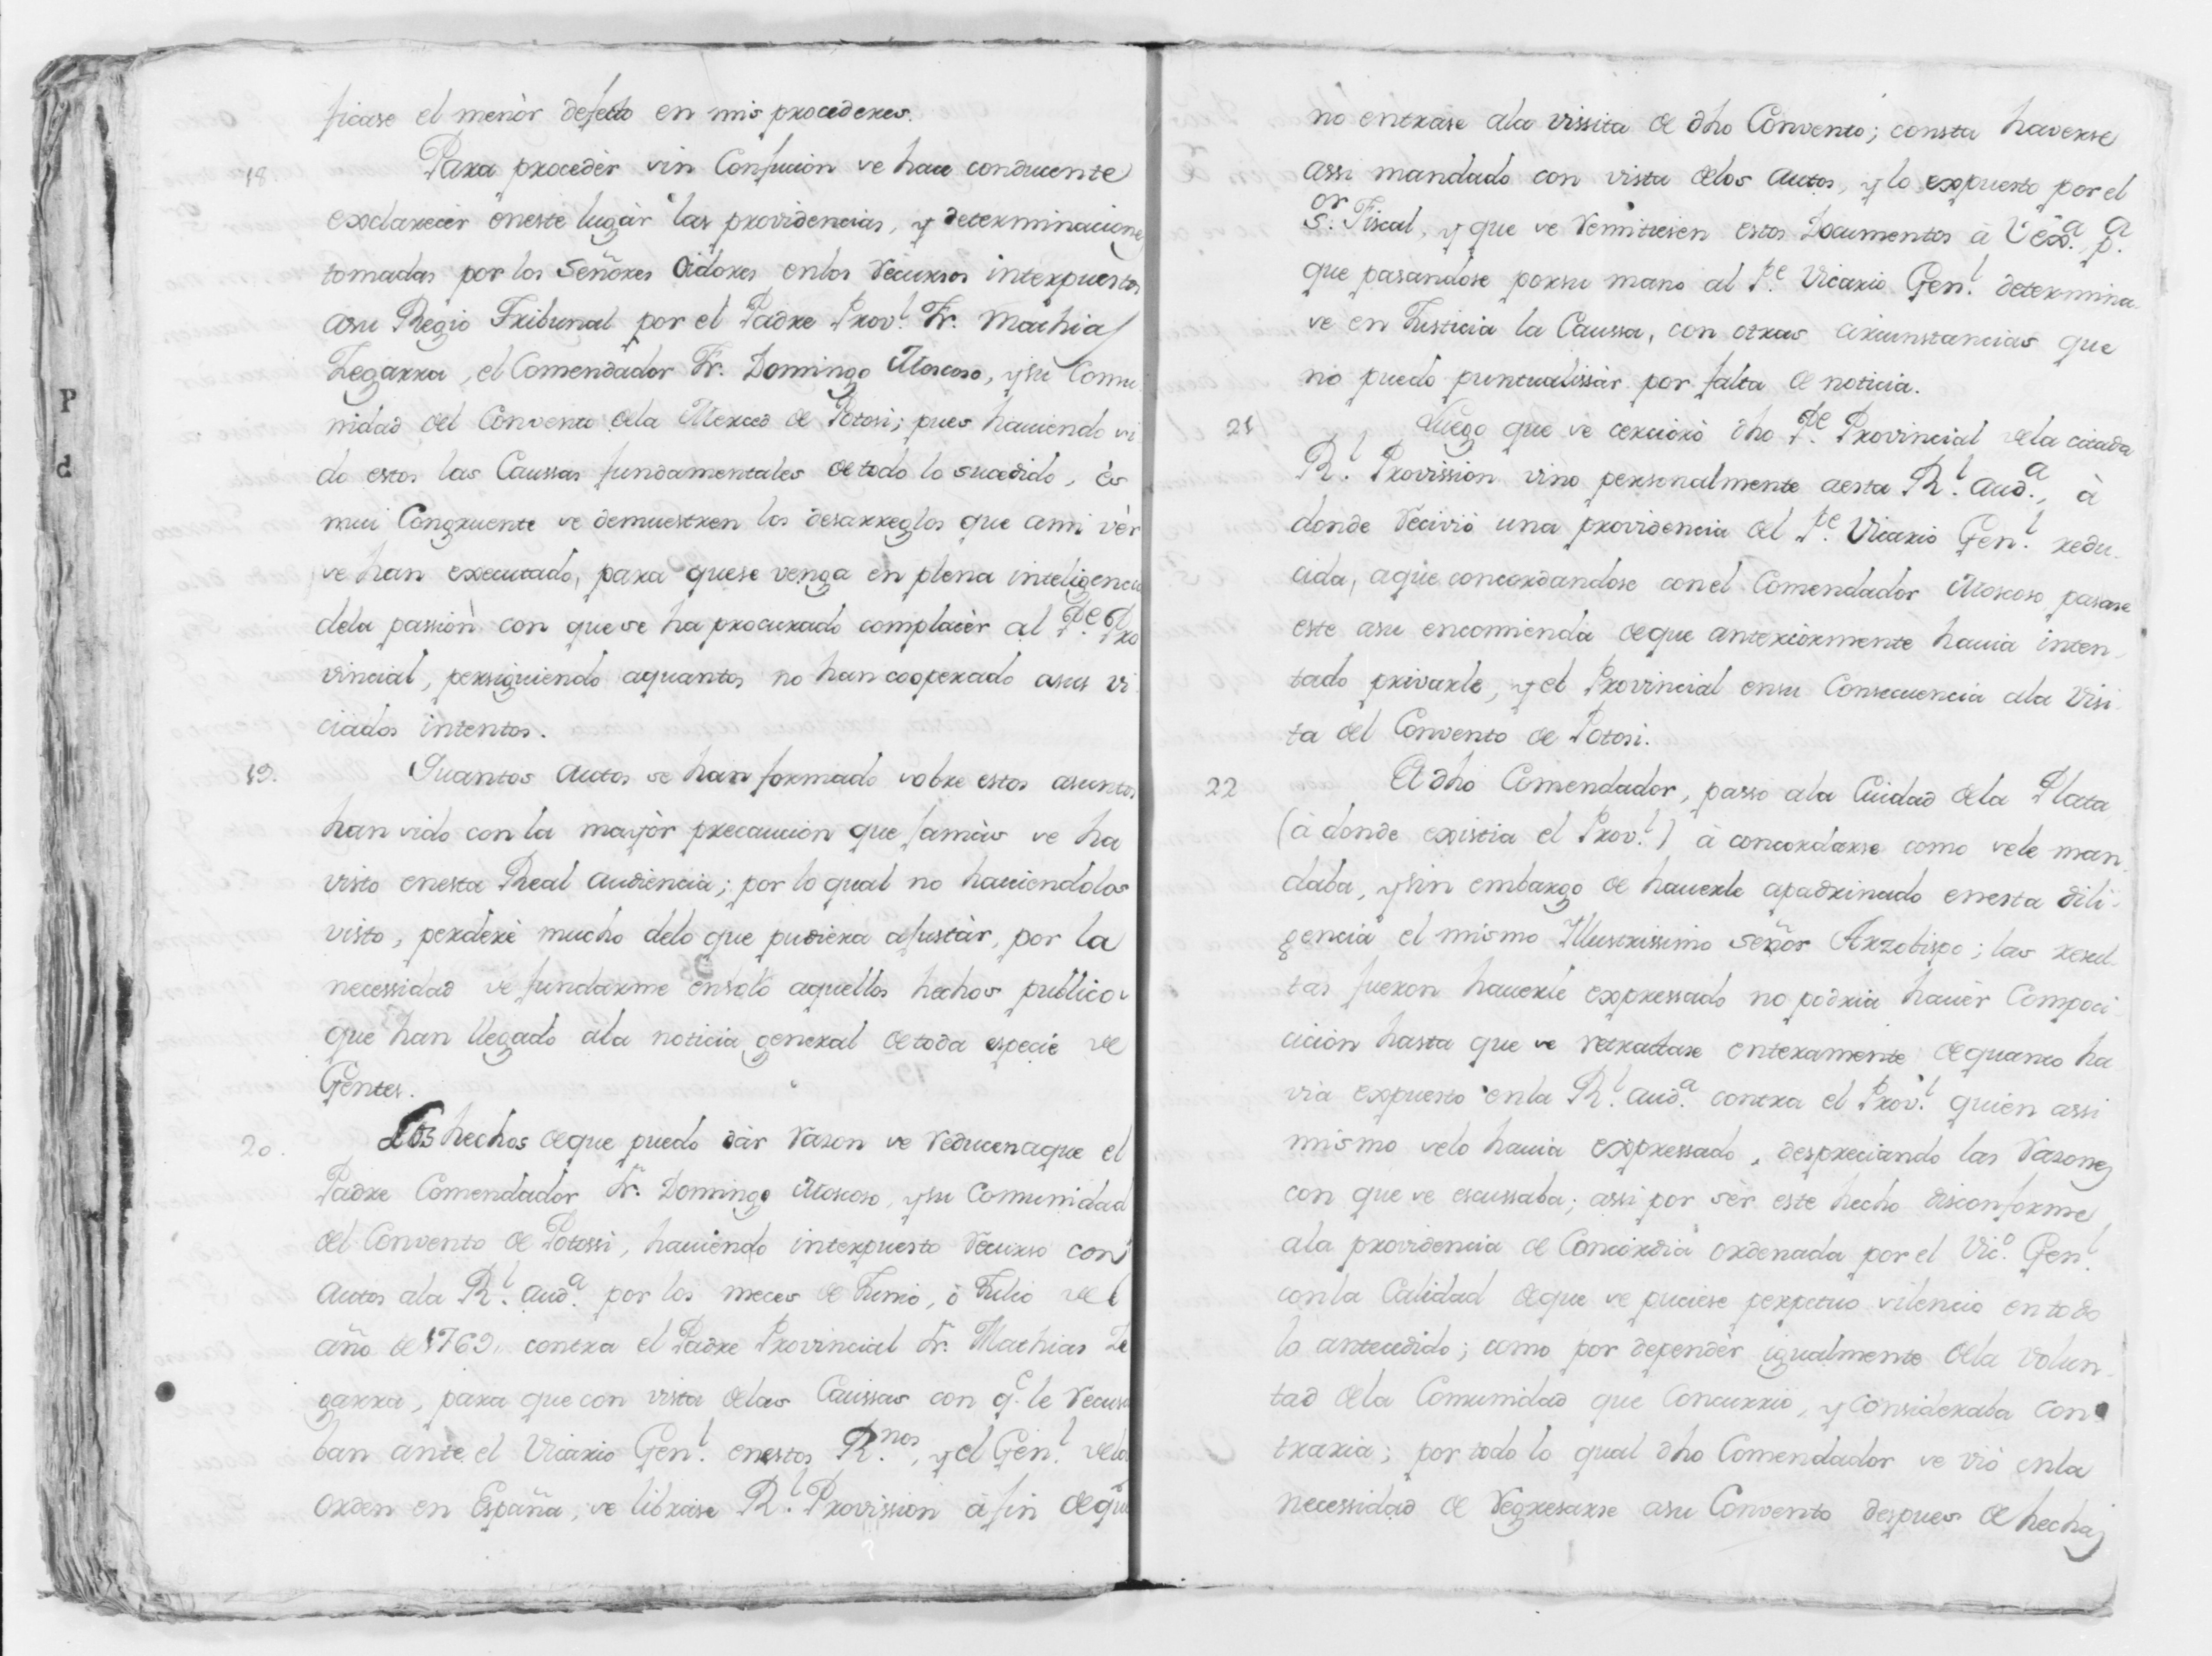 ficase el menòr defecto en mis procederes.
18. Para procedèr sin Confucion se hace conducente
exclarecèr eneste lugàr las providencias, y determinacione
tomadas por los Señores Oidores enlos recursos interpuestos
asu Regio Tribunal por el Padre Prov.l Fr. Mathias
Zegarra, el Comendador Fr. Domingo Moscoso, ysu Comu
nidad del Convento dela Merced de Potosi; pues haviendo si
do estos las Caussas fundamentales de todo lo sucedido, ès
mui Congruente se demuestren los desarreglos que ami vèr
se han executado, para quese venga en plena inteligencia
dela passiòn con que se ha procurado complacèr al P.e Pro
vincial, persiguiendo aquantos no han cooperado asus vi
ciados intentos.
19. Quantos Autos se han formado sobre estos asuntos
han sido con la mayòr precaucion que jamàs se ha
visto enesta Real Audiencia; por lo qual no haviendolos
visto, perderè mucho delo que pudiera ajustàr, por la
necessidad de fundarme ensolo aquellos hechos publicos
que han llegado ala noticia general de toda especie de
Gentes.
20. Los hechos deque puedo dàr razon se reducen aque el
Padre Comendador Fr. Domingo Moscoso, ysu Comunidad
del Convento de Potossi, haviendo interpuesto recurso con
Autos ala R.l Aud.a por los meces de Junio, ò Julio del
año de 1769, contra el Padre Provincial Fr. Mathias Ze
garra, para que con vista delas Caussas con q.e le recusa
ban ante el Vicario Gen.l enestos R.nos, y el Gen.l dela
Orden en España, se librase R.l Provission à fin de que
no entrase ala vissita de dho Convento; consta haverse
assi mandado con vista delos Autos, y lo expuesto por el
S.or Fiscal, y que se remitiesen estos Documentos à V Ex.a p.a
que pasandose porsu mano al P.e Vicario Gen.l determina
se en Justicia la Caussa, con otras circunstancias que
no puedo puntualissàr por falta de noticia.
21 Luego que se cercioró dho P.e Provincial dela citada
R.l Provission vino personalmente aesta R.l Aud.a, à
donde recivió una providencia del P.e Vicario Gen.l redu
cida, aque concordandose conel Comendador Moscoso pasase
este asu encomienda deque anteriormente havia inten
tado privarle, y el Provincial ensu Consecuencia ala Visi
ta del Convento de Potosi.
22 El dho Comendador, passo ala Ciudad dela Plata
(à donde existia el Prov.l) à concordarse como sele man
daba, ysin embargo de haverle apadrinado enesta dili-
gencia el mismo Illustrissimo Señor Arzobispo; las resul
tas fueron haverle expressado no podria havèr Compoci
cición hasta que se retractase enteramente dequanto ha
via expuesto enla R.l Aud.a contra el Prov.l quien assi
mismo selo havia expressado, despreciando las razones
con que se escussaba; assi por sèr este hecho disconforme
ala providencia de Concordia ordenada por el Vic.o Gen.l
conla Calidad deque se puciese perpetuo silencio entodo
lo antecedido; como por dependèr igualmente dela volun
tad dela Comunidad que Concurrio, y consideraba con
traria; por todo lo qual dho Comendador se vió enla
necessidad de regresarse asu Convento despues de hechas
P
d